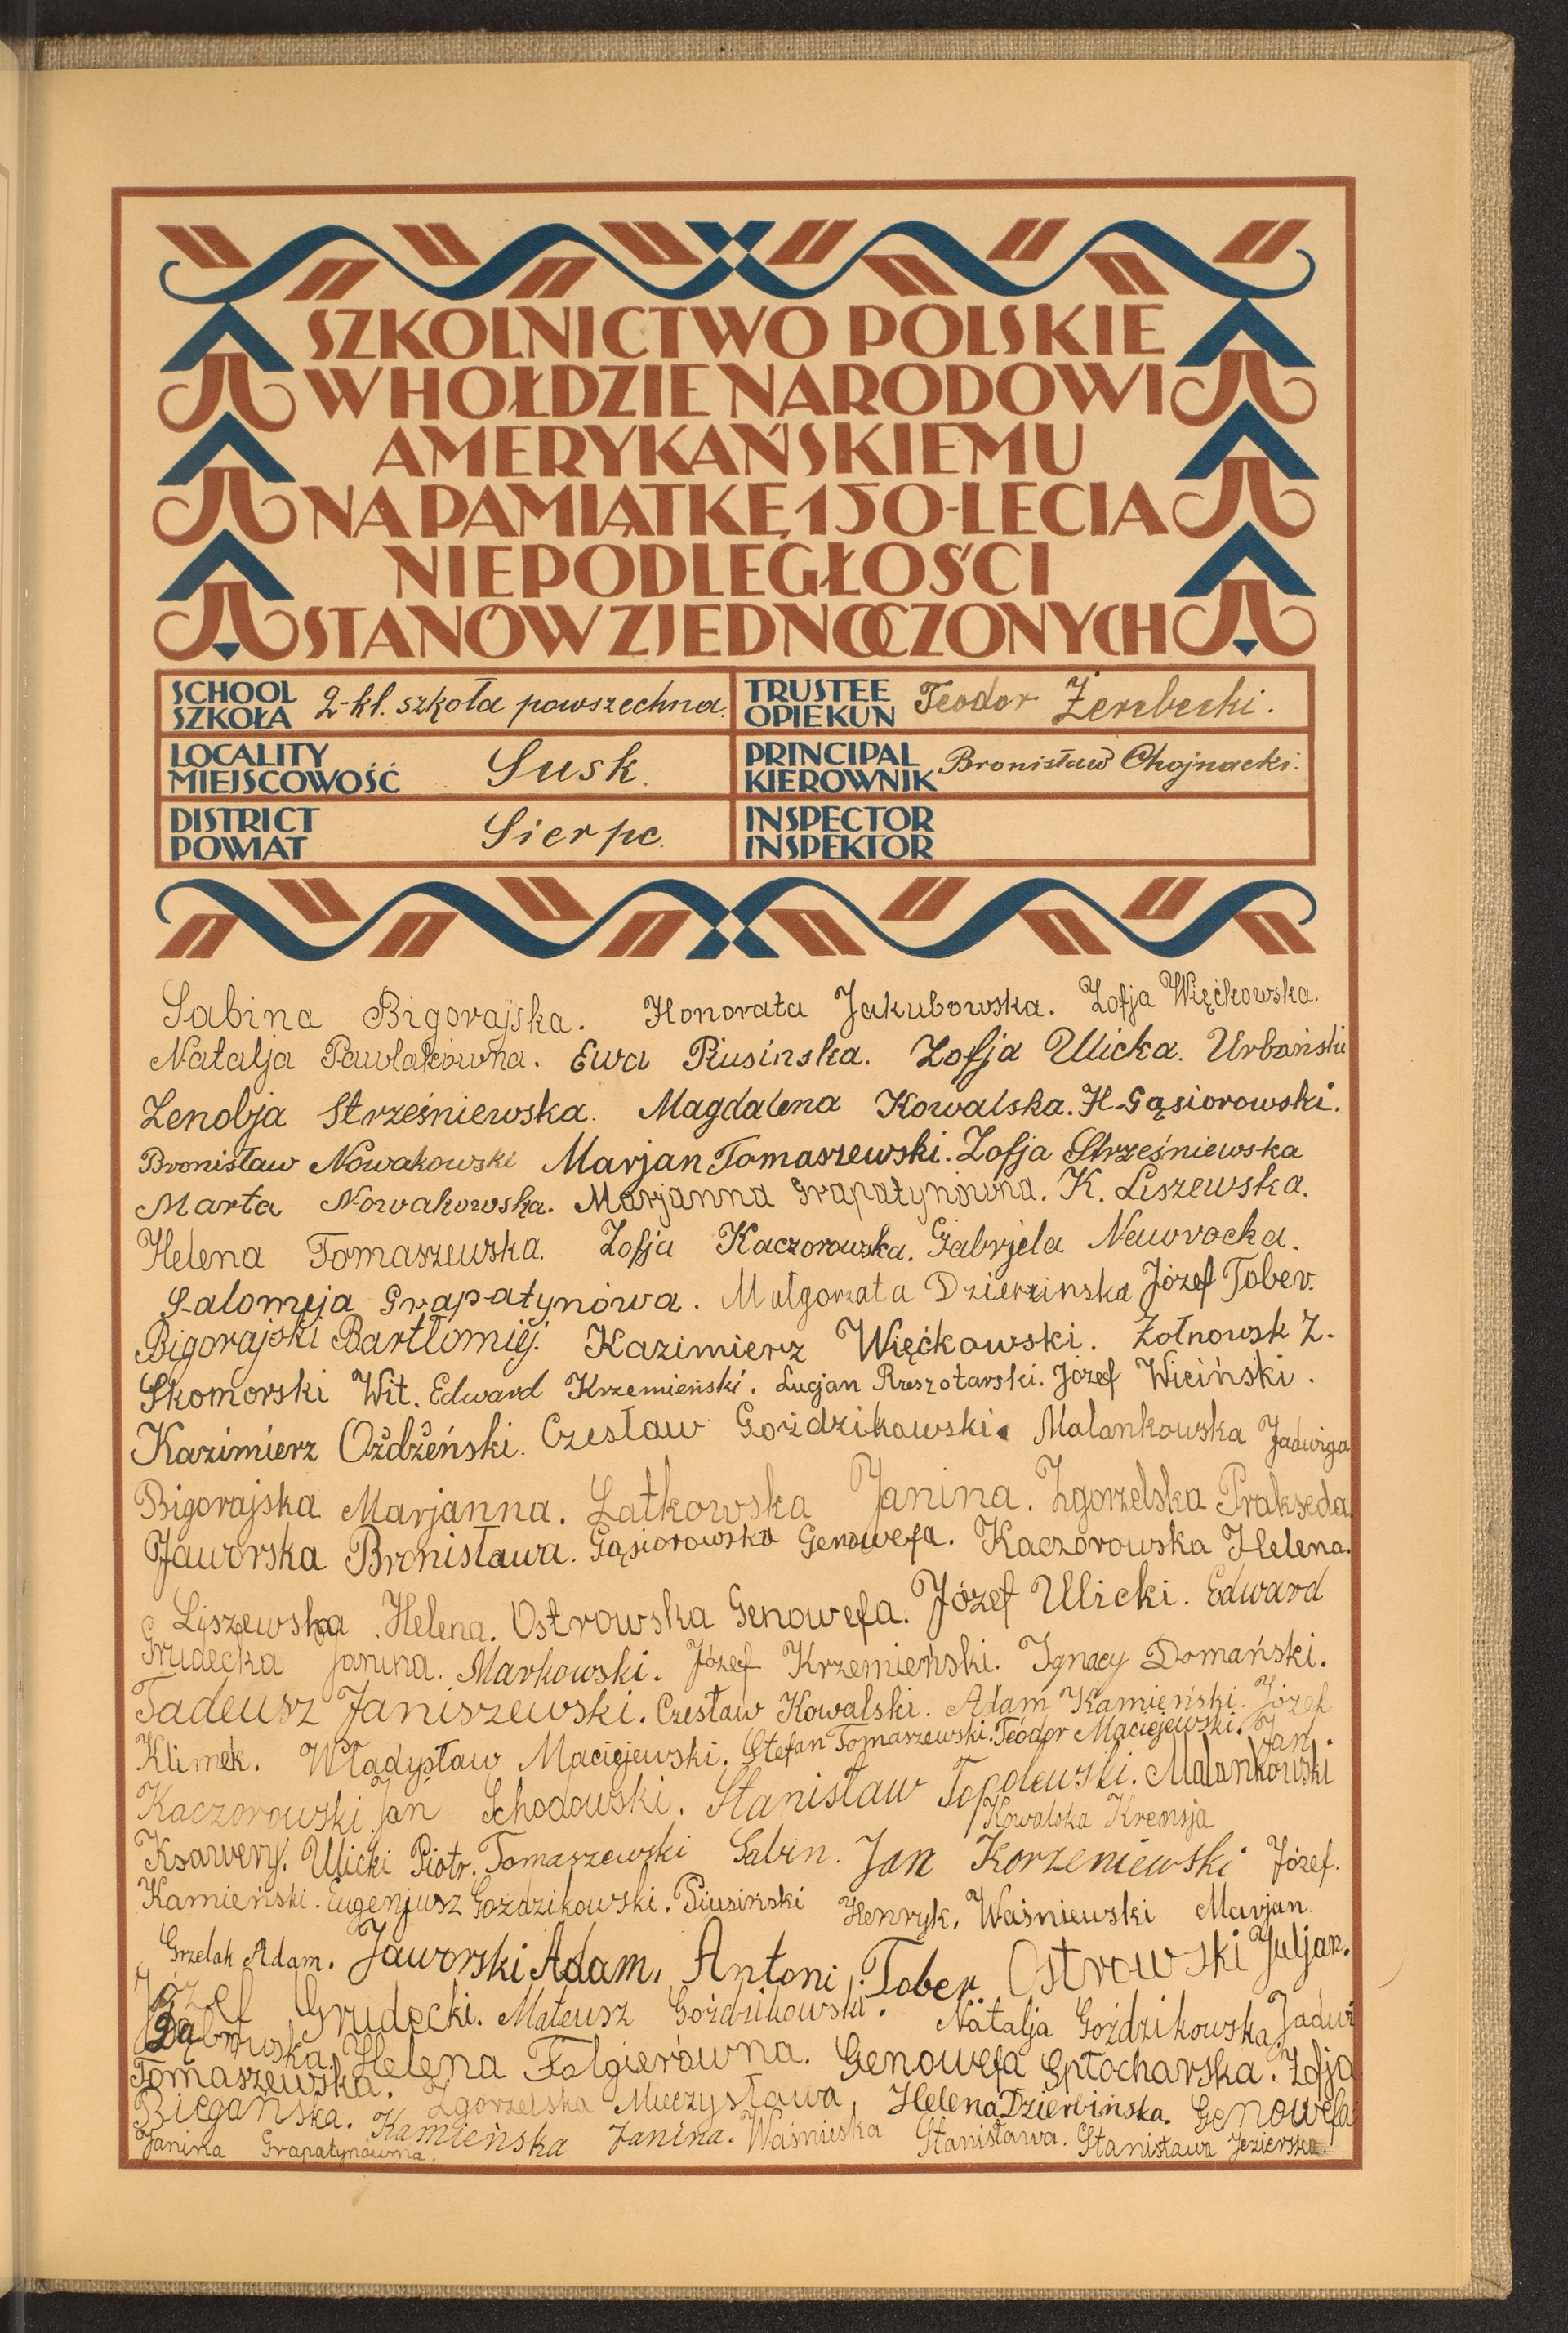 SZKOLNICTWO POLSKIE
W HOŁDZIE NARODOWI
AMERYKAŃSKIEMU
NA PAMIĄTKĘ 150-LECIA
NIEPODLEGŁOŚCI
STANÓW ZJEDNOCZONYCH
SCHOOL SZKOŁA 2-kl. szkoła powszechna.
TRUSTEE OPIEKUN Teodor Żerebecki.
LOCALITY MIEJSCOWOŚĆ Susk.
PRINCIPAL KIEROWNIK Bronisław Chojnacki.
DISTRICT POWIAT Sierpc.
INSPECTOR INSPEKTOR
Sabina Bigorajska. Honorata Jakubowska. Zofja Więćkowska.
Natalja Pawlakówna. Ewa Piusinska. Zofja Ulicka. Urbański
Zenobja Strześniewska. Magdalena Kowalska. H. Gąsiorowski.
Bronisław Nowakowski Marjan Tomaszewski. Zofja Strześniewska
Marta Nowakowska. Marjanna Grapatynówna. K. Liszewska.
Helena Tomaszewska. Zofja Kaczorowska. Gabrjela Nawrocka.
Salomeja Grapatynówa. Małgorzata Dzierzinska Józef Tober.
Bigorajski Bartłomiej. Kazimierz Więćkowski. Żołnowsk Z.
Skomorski Wit. Edward Krzemieński. Lucjan Rzeszotarski. Józef Wiciński.
Kazimierz Oździeński. Czesław Goździkowski. Malankowska Jadwiga
Bigorajska Marjanna. Latkowska Janina. Zgorzelska Prakseda
Jaworska Bronisława. Gąsiorowska Genowefa. Kaczorowska Helena.
Liszewska Helena. Ostrowska Genowefa. Józef Ulicki. Edward
Grudecka Janina. Markowski. Józef Krzemieński. Ignacy Domański.
Tadeusz Janiszewski. Czesław Kowalski. Adam Kamieński. Józef
Klimek. Władysław Maciejewski. Stefan Tomaszewski. Teodor Maciejewski. Jan
Kaczorowski. Jan Schodowski. Stanisław Topolewski. Malankowski
Kowalska Krensja
Ksawery. Ulicki Piotr. Tomaszewski Sabin. Jan Korzeniewski Józef.
Kamieński. Eugenjusz Goździkowski. Piusinski Henryk. Waśniewski Marjan.
Grzelak Adam. Jaworski Adam. Antoni Tober. Ostrowski Juljan.
Józef Grudecki. Mateusz Goździkowski. Natalja Goździkowska. Jadwi
Dąbrowska. Helena Folgierówna. Genowefa Gptocharska. Zofja
Tomaszewska. Zgorzelska Mieczysława, Helena Dzierbińska. Genowefa
Biegańska. Kamieńska Janina. Waśnieska Stanisława. Stanisława Jezierska.
Janina Grapatynówna.